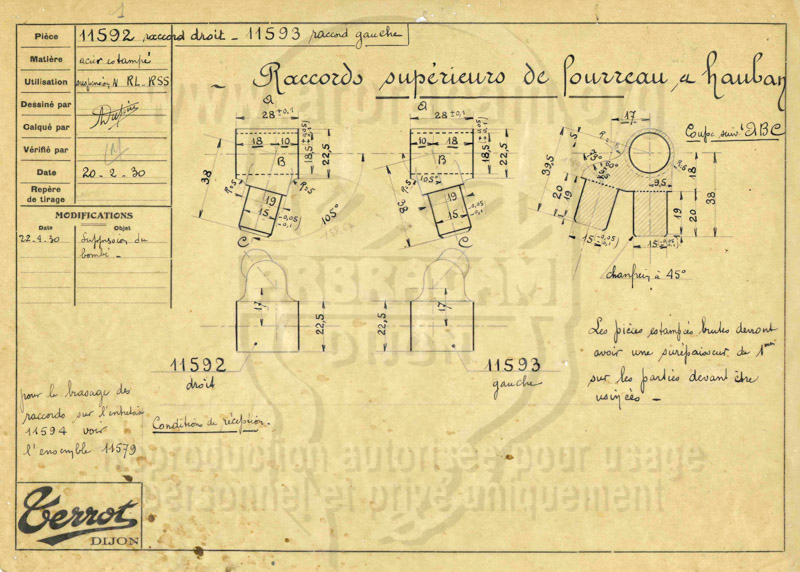 1
Pièce 11592 raccord droit - 11593 raccord gauche
Matière acier estampé
Utilisation RL - RSS
Dessiné par
Calqué par
Vérifié par
Date 20-2-30
Repère
de tirage
MODIFICATIONS
Date Objet
22-4-30 Suppression du
bombé -
- Raccords supérieurs de fourreau, a hauban
Coupe suivt ABC
a
28 ±0,1
18 10
B
18,5 ±0,05
22,5
38
R=5
R=5
19
15 -0,05 -0,1
105°
C
a
28 ±0,1
10 18
B
18,5
22,5
R=5
105°
R=5
38
19
15 -0,05 -0,1
C
17
5
33,5
20
19
9,5
18
38
19
20
15 -0,05 -0,1
15 -0,05 -0,1
chanfrein à 45°
17
22,5
22,5
17
11592
droit
11593
gauche
Les pièces estampées brutes devront
avoir une surépaisseur de 1
sur les parties devant être
usinées -
pour le brasage des
raccords sur l'entretoise
11594 voir
l'ensemble 11579
Condition de réception.
Reproduction autorisée pour usage
personnel et privé uniquement
Terrot
DIJON